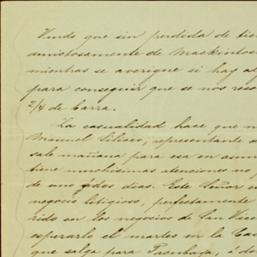 Vende que sin perdida de tie
amistosamente de Mackintos
mientras se averigue si hay al
para conseguir que se nos reco
2/4 de Carra.
La casualidad hace que n
Manuel representante d
sale mañana para esa en asun
tiene muchisimas atenciones no
de uno ó dos dias. Este Señor e
negocio litigioso, perfectamente
rido en los negocios de San Vice
esperarlo el martes en la Ca
que salga para á do